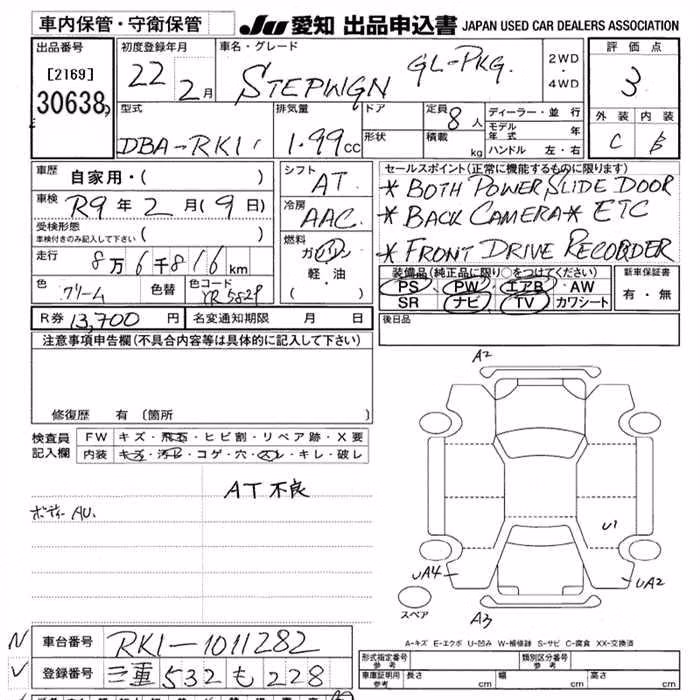 車内保管・守衛保管
JU 愛知 出品申込書 JAPAN USED CAR DEALERS ASSOCIATION
出品番号 初度登録年月 車名・グレード 評価点
[2169] 22 2月 STEPWGN GL-PKG. 2WD・4WD 3
30638
型式 排気量 ドア 定員 8人 ディーラー・並行 外装 内装
形状 積載 kg モデル年式 年
DBA-RK1 1.99cc ハンドル 左・右 C B
車歴 自家用・( ) シフト AT セールスポイント(正常に機能するものに限ります)
*BOTH POWER SLIDE DOOR
車検 R9年2月(9日) 冷房 AAC *BACK CAMERA* ETC
受検形態 車検付きのみ記入して下さい ( ) *FRONT DRIVE RECORDER
走行 8万6千816km 燃料 ガソリン
軽・油
( )
装備品(純正品に限り○をつけてください) 新車保証書
色 クリーム 色替 色コード YR582P PS PW エアB AW 有・無
SR ナビ TV カワシート
R券 13,700円 名変通知期限 月 日 後日品
注意事項申告欄(不具合内容等は具体的に記入して下さい)
修復歴 有 〔箇所 〕
検査員記入欄 FW キズ・飛石・ヒビ割・リペア跡・X要
内装 キズ・汚レ・コゲ・穴・スレ・キレ・破レ
AT不良
ボディーAU.
A2
U1
UA4 UA2
スペア A3
A-キズ E-エクボ U-凹み W-補修跡 S-サビ C-腐食 XX-交換済
車台番号 RK1-1011282 形式指定番号 参考 類別区分番号 参考
登録番号 三重 532 も 228 車庫証明用 参考 長さ cm 幅 cm 高さ cm